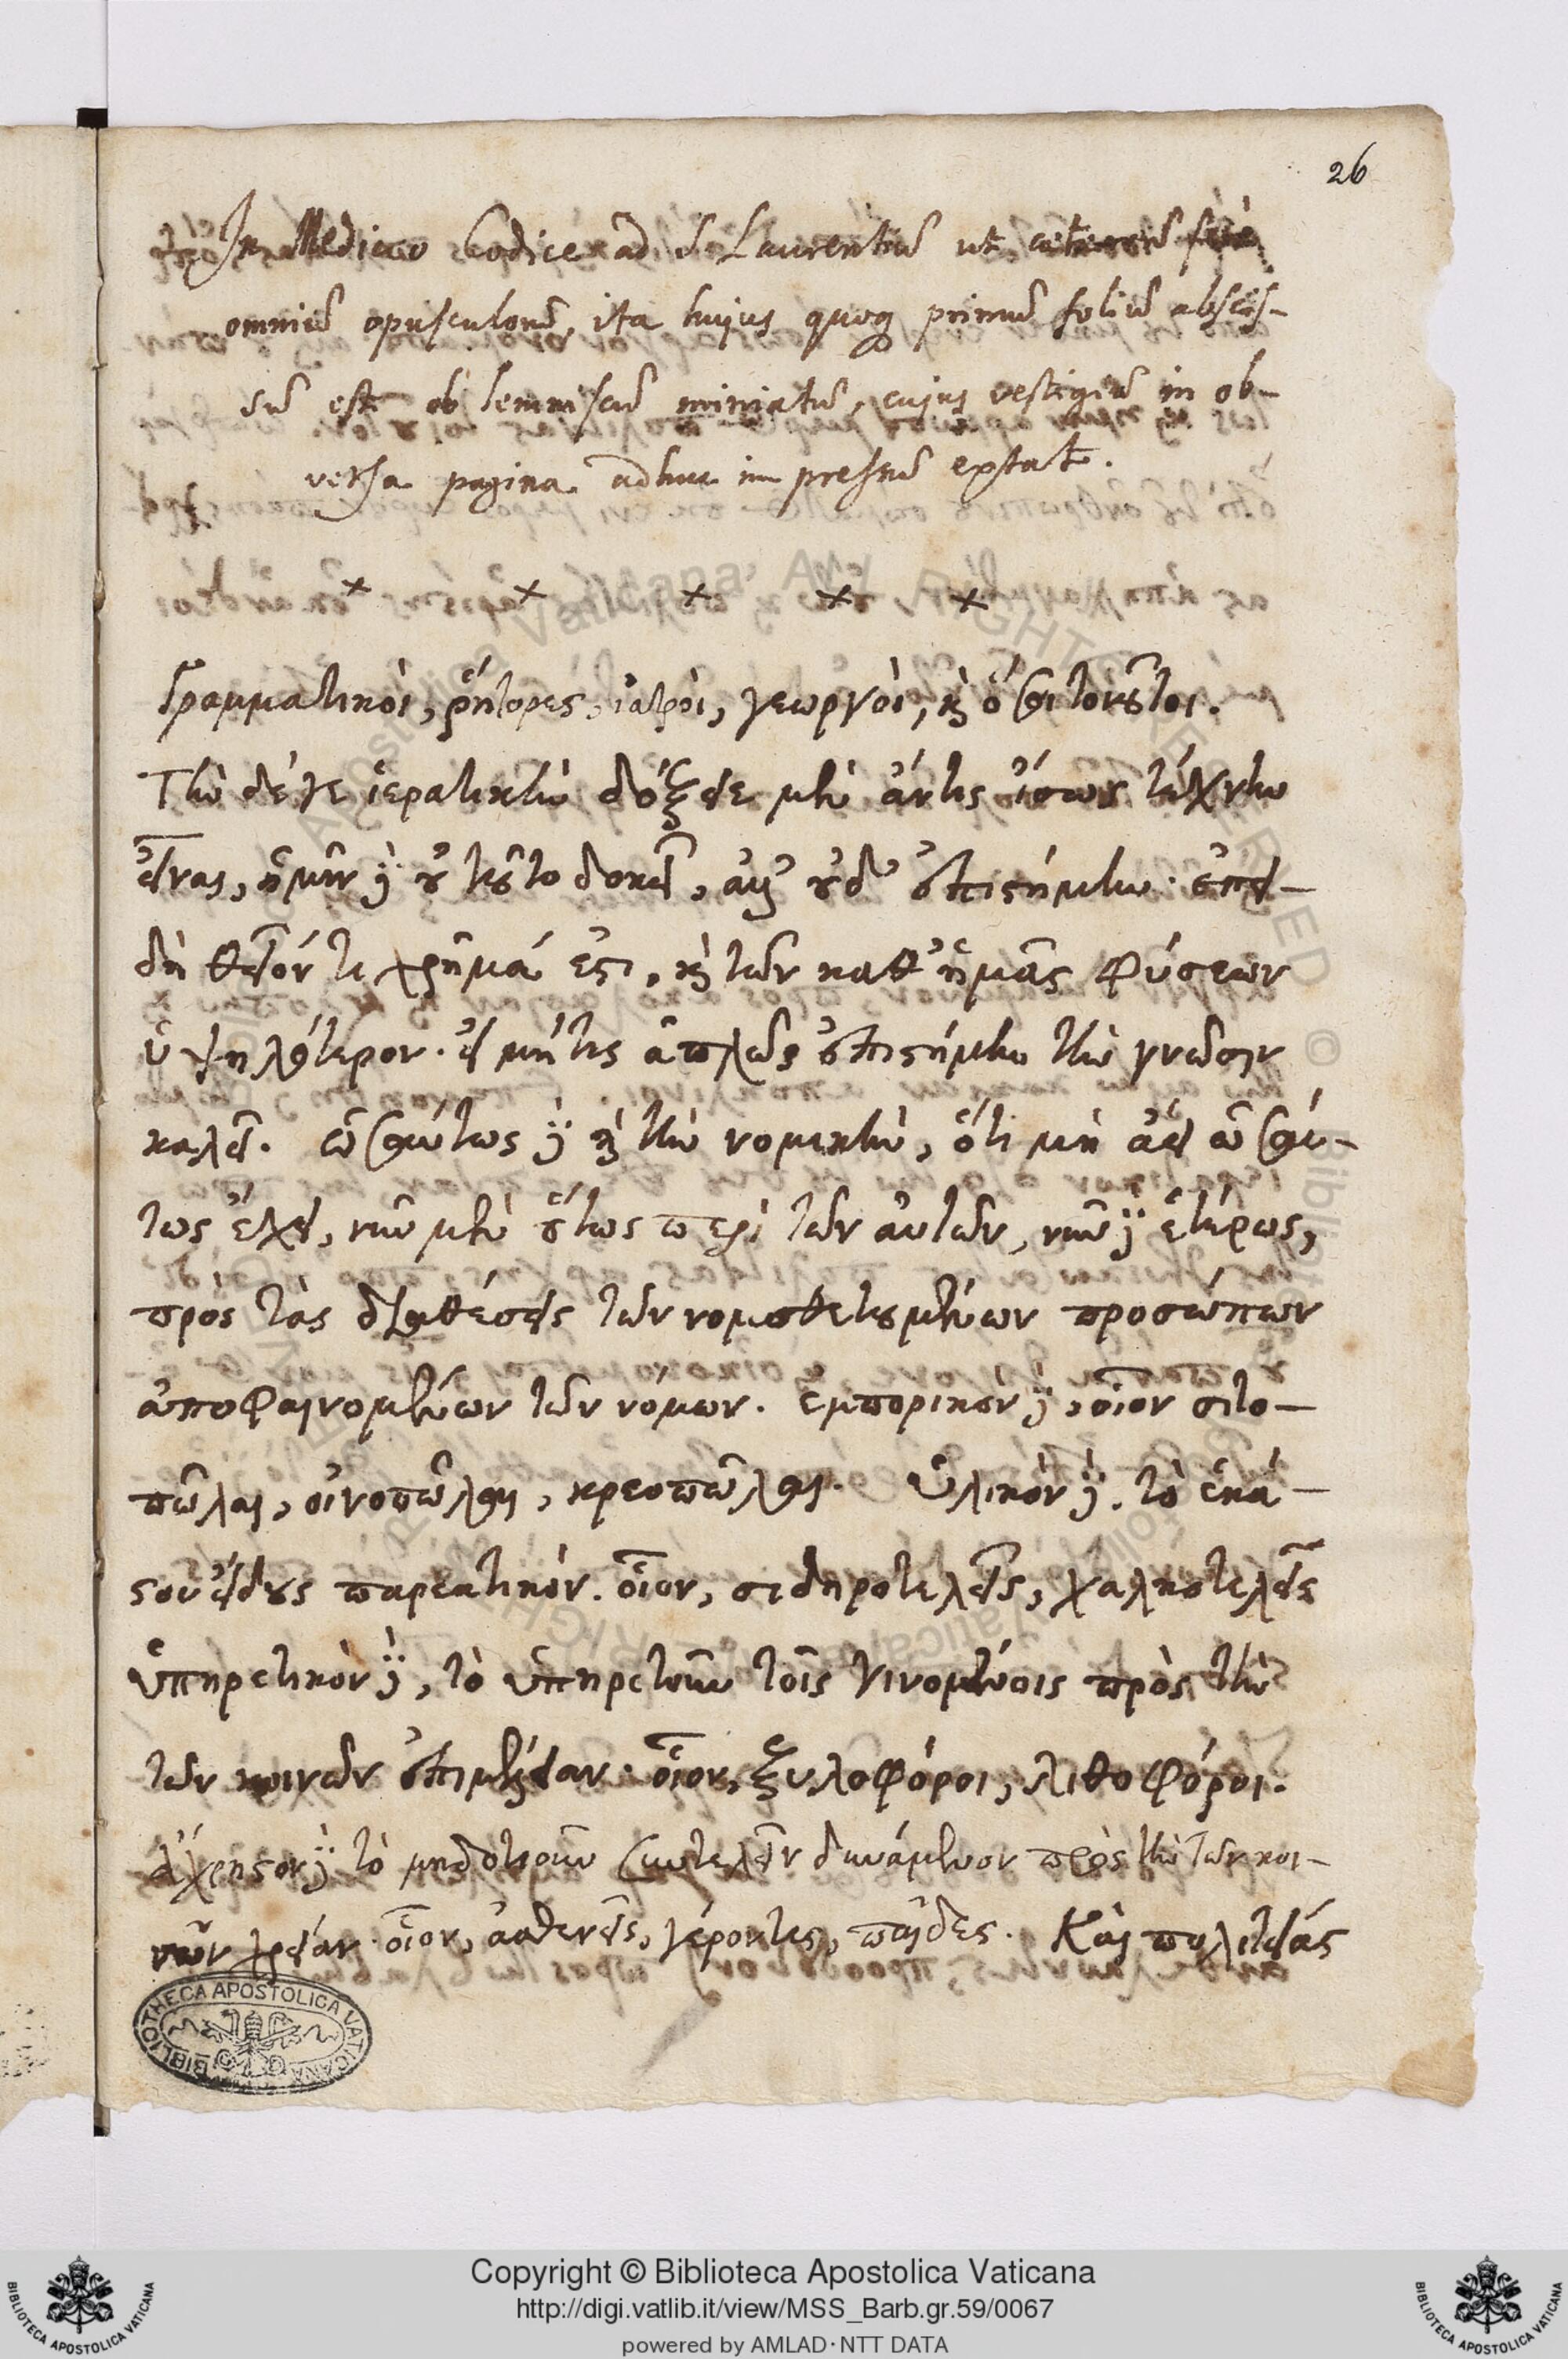 26
In Mediceo Codice ad S. Laurentiū ut ceterorū ferè
omniū opusculorū, ita hujus quoq primū foliū abscis-
sū est ob lemniscū miniatū, cujus vestigiū in ob-
versa pagina adhuc impressū extat.
× × × × ×
Γραμματικοὶ, ῥήτορες, ἰατροὶ, γεωργοὶ, κỳ ὅσοι τοιοῦτοι.
Τὴν δέ γε ἱερατικὴν δόξειε μὲν ἄν τις ἴσως τέχνην
εἶναι, ἡμῖν δὲ οὐ τοῦτο δοκεῖ, ἀλλ' οὐδ' ἐπιστήμην. ἐπει-
δὴ θεῖόν τι χρῆμά ἐστι, κỳ τῶν καθ' ἡμᾶς φύσεων
ὑψηλότερον. εἰ μή τις ἁπλῶς ἐπιστήμην τὴν γνῶσιν
καλεῖ. ὡσαύτως δὲ κỳ τὴν νομικὴν, ὅτι μὴ ἀεὶ ὡσαύ-
τως ἔχει, νῦν μὲν οὕτως περὶ τῶν αὐτῶν, νῦν δὲ ἑτέρως,
πρὸς τὰς διαθέσεις τῶν νομοθετουμένων προσώπων
ἀποφαινομένων τῶν νόμων. ἐμπορικὸν δὲ, οἷον σιτο-
πῶλαι, οἰνοπῶλαι, κρεοπῶλαι. Ὑλικὸν δὲ, τὸ ἑκά-
στου εἴδους παρεκτικόν. οἷον, σιδηροτελεῖς, χαλκοτελεῖς
ὑπηρετικὸν δὲ, τὸ ὑπηρετοῦν τοῖς γινομένοις πρὸς τὴν
τῶν κοινῶν ἐπιμέλειαν. οἷον, ξυλοφόροι, λιθοφόροι.
ἄχρηστον δὲ τὸ μηδοτιοῦν συντελεῖν δυνάμενον πρὸς τὴν τῶν κοι-
νῶν χρείαν. οἷον, ἀσθενεῖς, γέροντες, παῖδες. Καὶ πολιτείας
BIBLIOTHECA APOSTOLICA VATICANA
Copyright © Biblioteca Apostolica Vaticana
http://digi.vatlib.it/view/MSS_Barb.gr.59/0067
powered by AMLAD·NTT DATA
BIBLIOTECA APOSTOLICA VATICANA
BIBLIOTECA APOSTOLICA VATICANA